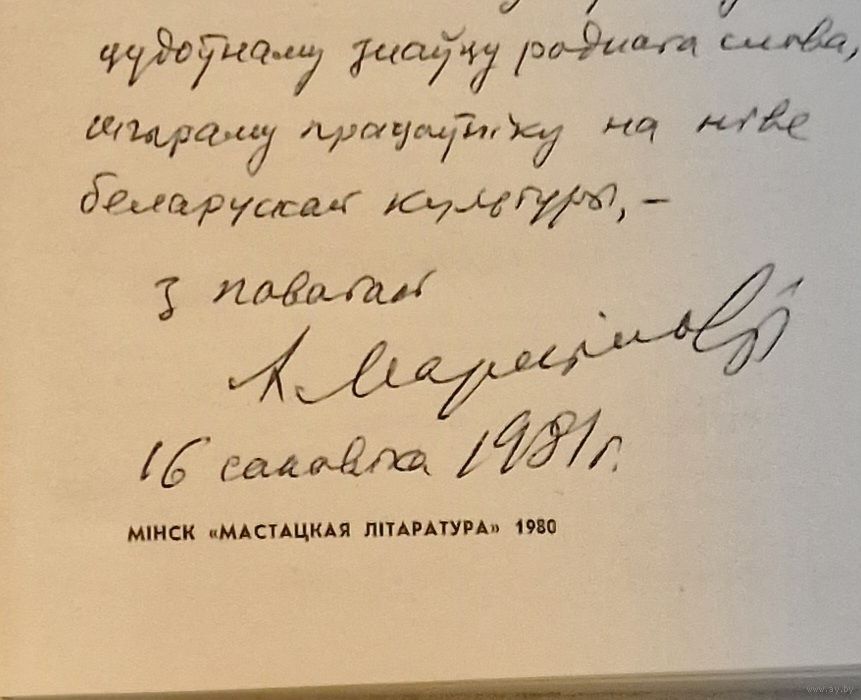 цудоўнаму знаўцу роднага слова,
шчыраму працаўніку на ніве
беларускай культуры, –
з павагай
А. Марціновіч
16 сакавіка 1981 г.
МІНСК «МАСТАЦКАЯ ЛІТАРАТУРА» 1980
www.ay.by